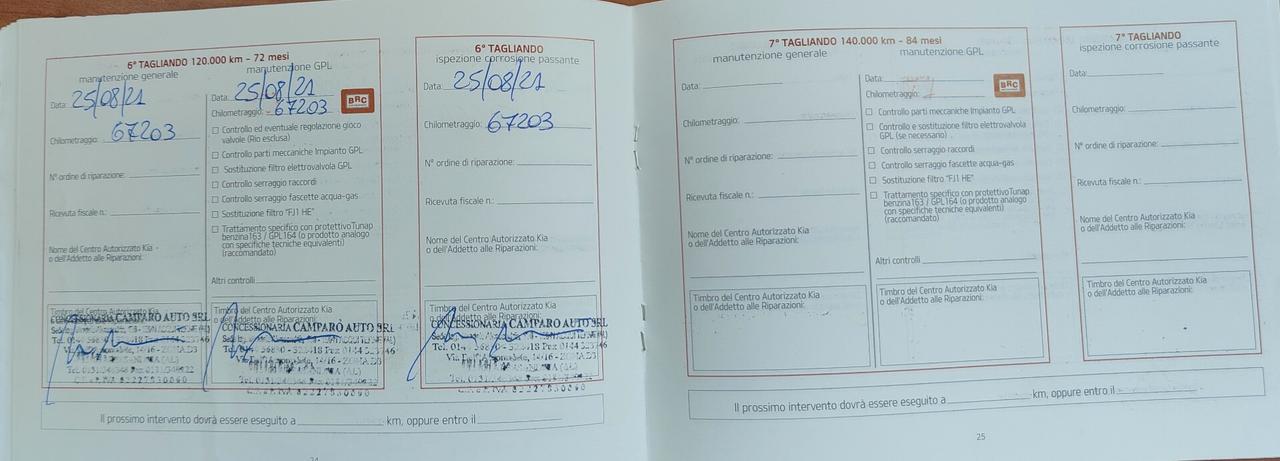 6° TAGLIANDO 120.000 km - 72 mesi
manutenzione generale
Data: 25/08/21
Chilometraggio: 67203
N° ordine di riparazione:
Ricevuta fiscale n.:
Nome del Centro Autorizzato Kia
o dell'Addetto alle Riparazioni:
Timbro del Centro Autorizzato Kia
o dell'Addetto alle Riparazioni:
CONCESSIONARIA CAMPARO AUTO SRL
manutenzione GPL
Data: 25/08/21
Chilometraggio: 67203
BRC
Controllo ed eventuale regolazione gioco
valvole (Rio esclusa)
Controllo parti meccaniche Impianto GPL
Sostituzione filtro elettrovalvola GPL
Controllo serraggio raccordi
Controllo serraggio fascette acqua-gas
Sostituzione filtro "FJ1 HE"
Trattamento specifico con protettivo Tunap
benzina163 / GPL164 (o prodotto analogo
con specifiche tecniche equivalenti)
(raccomandato)
Altri controlli
Timbro del Centro Autorizzato Kia
o dell'Addetto alle Riparazioni:
CONCESSIONARIA CAMPARO AUTO SRL
6° TAGLIANDO
ispezione corrosione passante
Data: 25/08/21
Chilometraggio: 67203
N° ordine di riparazione:
Ricevuta fiscale n.:
Nome del Centro Autorizzato Kia
o dell'Addetto alle Riparazioni:
Timbro del Centro Autorizzato Kia
o dell'Addetto alle Riparazioni:
CONCESSIONARIA CAMPARO AUTO SRL
Il prossimo intervento dovrà essere eseguito a km, oppure entro il
7° TAGLIANDO 140.000 km - 84 mesi
manutenzione generale
Data:
Chilometraggio:
N° ordine di riparazione:
Ricevuta fiscale n.:
Nome del Centro Autorizzato Kia
o dell'Addetto alle Riparazioni:
Timbro del Centro Autorizzato Kia
o dell'Addetto alle Riparazioni:
manutenzione GPL
Data:
Chilometraggio:
BRC
Controllo parti meccaniche Impianto GPL
Controllo e sostituzione filtro elettrovalvola
GPL (se necessario)
Controllo serraggio raccordi
Controllo serraggio fascette acqua-gas
Sostituzione filtro "FJ1 HE"
Trattamento specifico con protettivo Tunap
benzina163 / GPL164 (o prodotto analogo
con specifiche tecniche equivalenti)
(raccomandato)
Altri controlli
Timbro del Centro Autorizzato Kia
o dell'Addetto alle Riparazioni:
7° TAGLIANDO
ispezione corrosione passante
Data:
Chilometraggio:
N° ordine di riparazione:
Ricevuta fiscale n.:
Nome del Centro Autorizzato Kia
o dell'Addetto alle Riparazioni:
Timbro del Centro Autorizzato Kia
o dell'Addetto alle Riparazioni:
Il prossimo intervento dovrà essere eseguito a km, oppure entro il
25